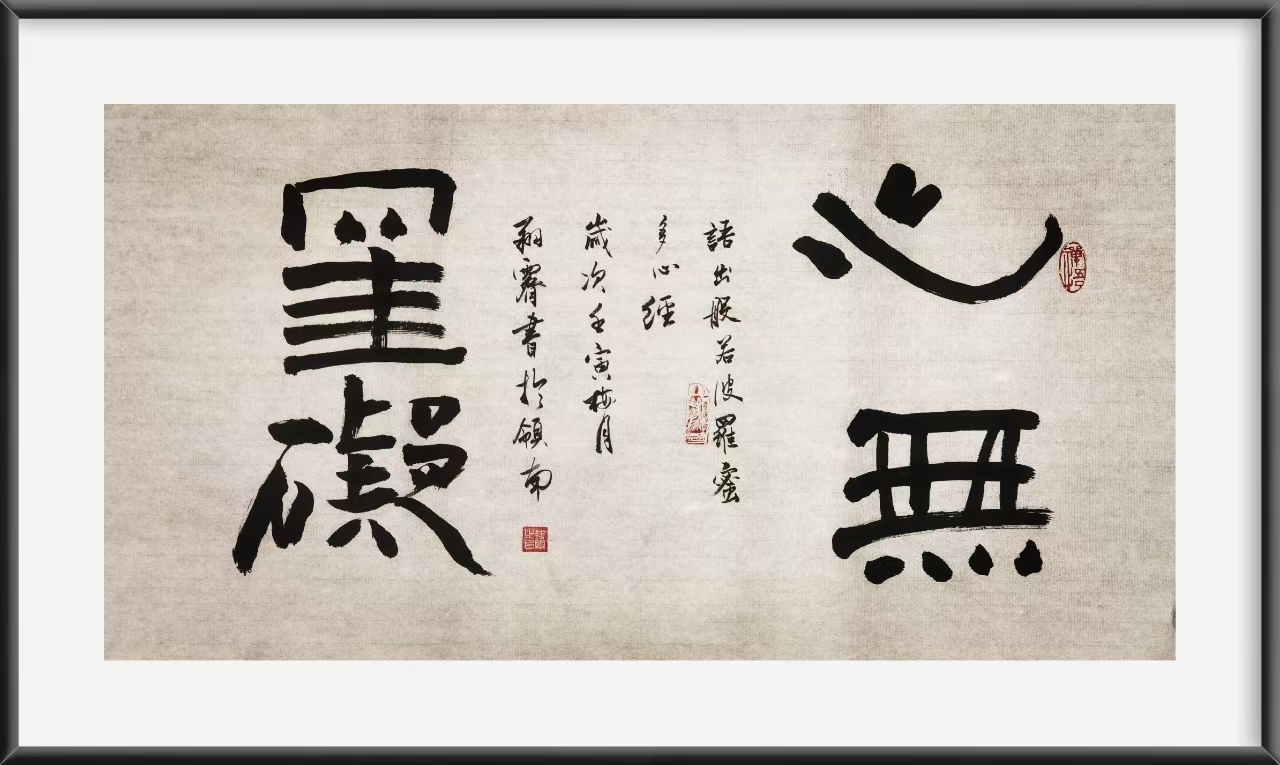 心無
禪悟
語出般若波羅蜜
多心經
歲次壬寅梅月
翔霽書於領南
罣礙